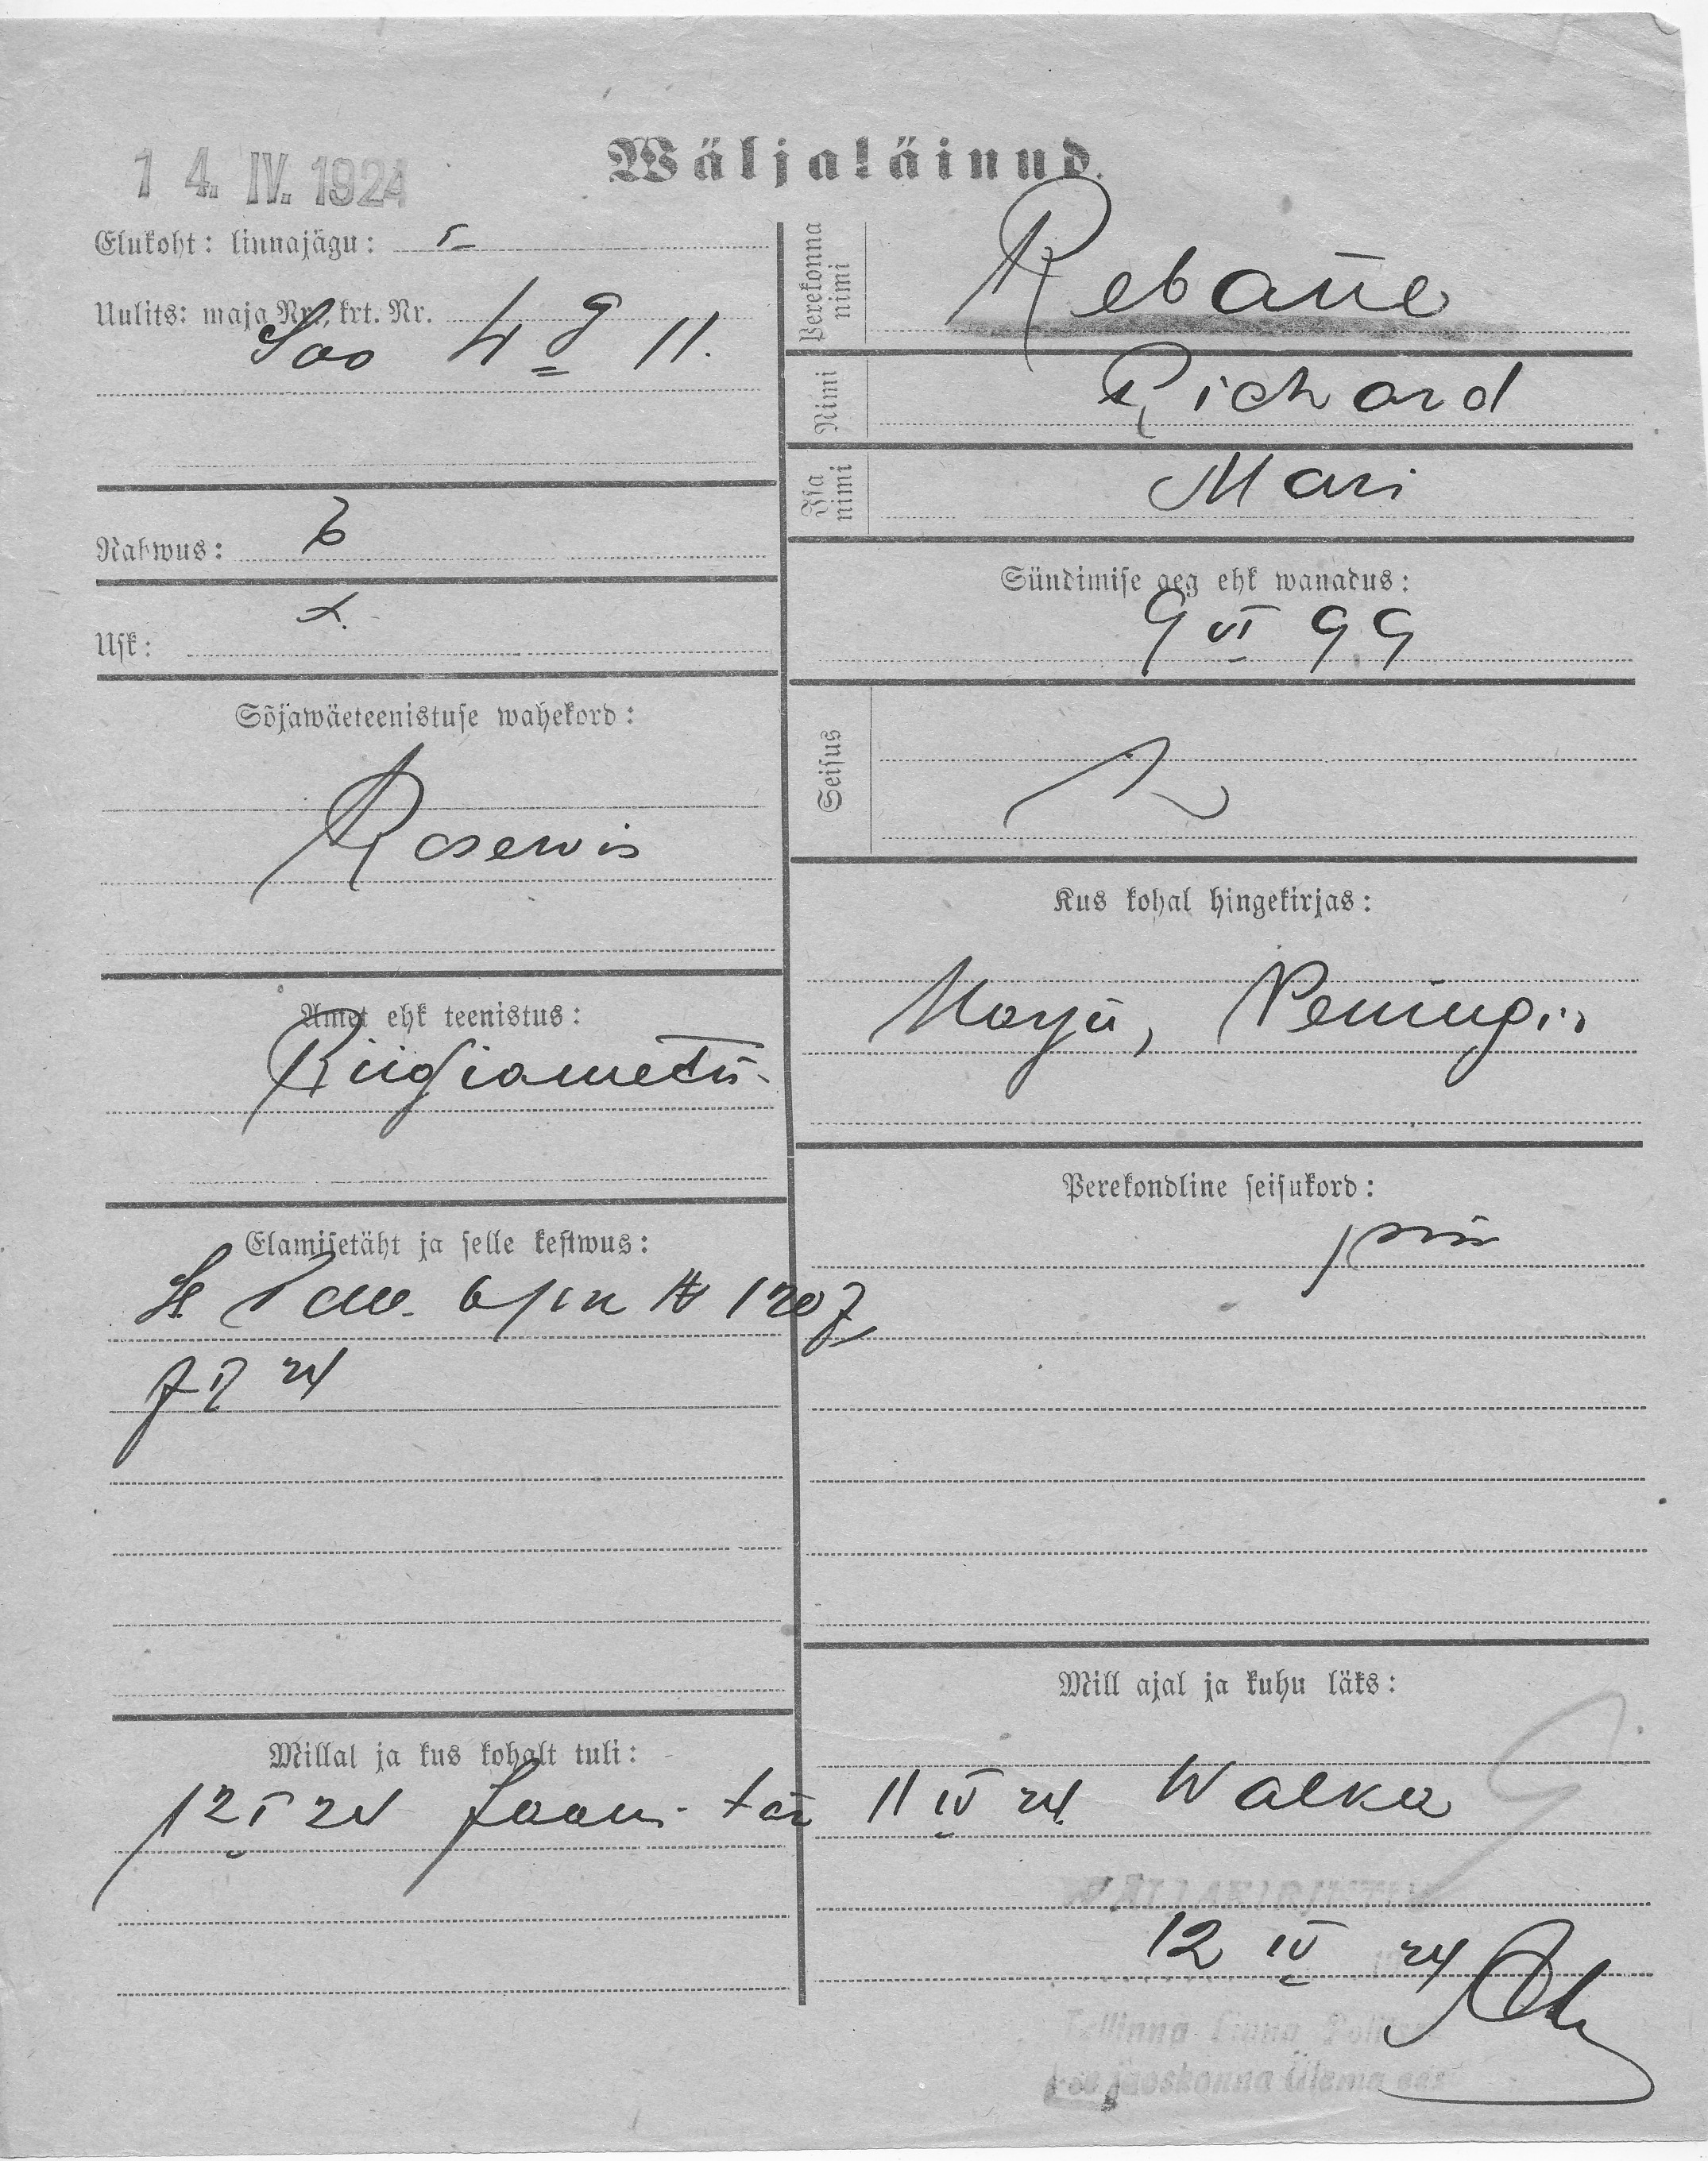 Wäljaläinud.
14. IV. 1924
Elukoht: linnajagu:
Uulits: maja Nr., krt. Nr.
Soo 4 g 11.
Rahwus:
Usk:
Sõjawäeteenistuse wahekord:
Reserwis
Amet ehk teenistus:
Riigiametn.
Elamisetäht ja selle kestwus:
№ 1207
24
Millal ja kus kohalt tuli:
12 I 24 Jaani tän
Perekonna nimi
Rebane
Nimi
Richard
Isa nimi
Mari
Sündimise aeg ehk wanadus:
9 VI 99
Seisus
Kus kohal hingekirjas:
Harju, Peningi
Perekondline seisukord:
Mill ajal ja kuhu läks:
11 IV 24 Walka
VÄLJAKIRJUTATUD
12 IV 24
Tallinna Linna Polit
jaoskonna Ülema